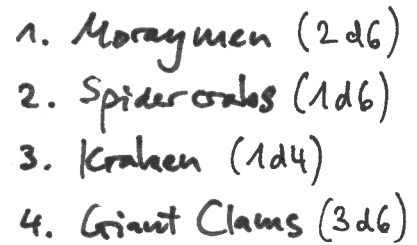 1. Moraymen (2d6)
2. Spidercrabs (1d6)
3. Kraken (1d4)
4. Giant Clams (3d6)